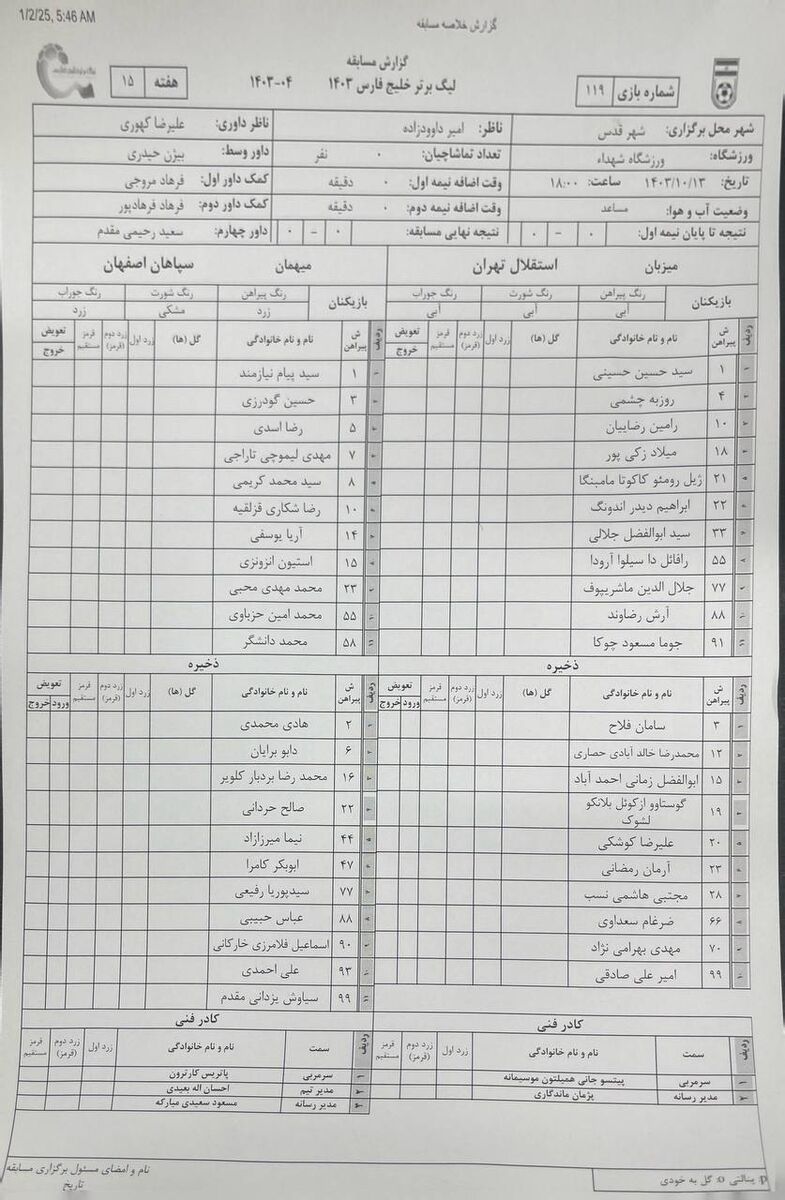 1/2/25, 5:46 AM
گزارش خلاصه مسابقه
گزارش مسابقه
شماره بازی ۱۱۹
لیگ برتر خلیج فارس ۱۴۰۳ ۱۴۰۳-۰۴
هفته ۱۵
شهر محل برگزاری: شهر قدس ناظر: امیر داوودزاده ناظر داوری: علیرضا کهوری
ورزشگاه: ورزشگاه شهداء تعداد تماشاچیان: ۰ نفر داور وسط: بیژن حیدری
تاریخ: ۱۴۰۳/۱۰/۱۳ ساعت: ۱۸:۰۰ وقت اضافه نیمه اول: ۰ دقیقه کمک داور اول: فرهاد مروجی
وضعیت آب و هوا: مساعد وقت اضافه نیمه دوم: ۰ دقیقه کمک داور دوم: فرهاد فرهادپور
نتیجه تا پایان نیمه اول: ۰ - ۰ نتیجه نهایی مسابقه: ۰ - ۰ داور چهارم: سعید رحیمی مقدم
میزبان استقلال تهران
بازیکنان رنگ پیراهن رنگ شورت رنگ جوراب
آبی آبی آبی
ردیف ش پیراهن نام و نام خانوادگی گل (ها) زرد اول زرد دوم (قرمز) قرمز مستقیم تعویض خروج
۱ سید حسین حسینی
۴ روزبه چشمی
۱۰ رامین رضاییان
۱۸ میلاد زکی پور
۲۱ ژیل رومئو کاکوتا مامبنگا
۲۲ ابراهیم دیدر اندونگ
۳۳ سید ابوالفضل جلالی
۵۵ رافائل دا سیلوا آرودا
۷۷ جلال الدین ماشریپوف
۸۸ آرش رضاوند
۹۱ جوما مسعود چوکا
ذخیره
ردیف ش پیراهن نام و نام خانوادگی گل (ها) زرد اول زرد دوم (قرمز) قرمز مستقیم تعویض ورود خروج
۳ سامان فلاح
۱۲ محمدرضا خالد آبادی حصاری
۱۵ ابوالفضل زمانی احمد آباد
۱۹ گوستاوو ازکوئل بلانکو
لشوک
۲۰ علیرضا کوشکی
۲۳ آرمان رمضانی
۲۸ مجتبی هاشمی نسب
۶۶ ضرغام سعداوی
۷۰ مهدی بهرامی نژاد
۹۹ امیر علی صادقی
کادر فنی
ردیف سمت نام و نام خانوادگی زرد اول زرد دوم (قرمز) قرمز مستقیم
۱ سرمربی پیتسو جانی همیلتون موسیمانه
۲ مدیر رسانه پژمان ماندگاری
میهمان سپاهان اصفهان
بازیکنان رنگ پیراهن رنگ شورت رنگ جوراب
زرد مشکی زرد
ردیف ش پیراهن نام و نام خانوادگی گل (ها) زرد اول زرد دوم (قرمز) قرمز مستقیم تعویض خروج
۱ سید پیام نیازمند
۳ حسین گودرزی
۵ رضا اسدی
۷ مهدی لیموچی تاراجی
۸ سید محمد کریمی
۱۰ رضا شکاری قزلقیه
۱۴ آریا یوسفی
۱۵ استیون انزونزی
۲۳ محمد مهدی محبی
۵۵ محمد امین حزباوی
۵۸ محمد دانشگر
ذخیره
ردیف ش پیراهن نام و نام خانوادگی گل (ها) زرد اول زرد دوم (قرمز) قرمز مستقیم تعویض ورود خروج
۲ هادی محمدی
۶ دابو برایان
۱۶ محمد رضا بردبار کلویر
۲۲ صالح حردانی
۴۴ نیما میرزازاد
۴۷ ابوبکر کامرا
۷۷ سیدپوریا رفیعی
۸۸ عباس حبیبی
۹۰ اسماعیل فلامرزی خارکانی
۹۳ علی احمدی
۹۹ سیاوش یزدانی مقدم
کادر فنی
ردیف سمت نام و نام خانوادگی زرد اول زرد دوم (قرمز) قرمز مستقیم
۱ سرمربی پاتریس کارترون
۲ مدیر تیم احسان اله بعیدی
مدیر رسانه مسعود سعیدی مبارکه
P: پنالتی O: گل به خودی
نام و امضای مسئول برگزاری مسابقه
تاریخ